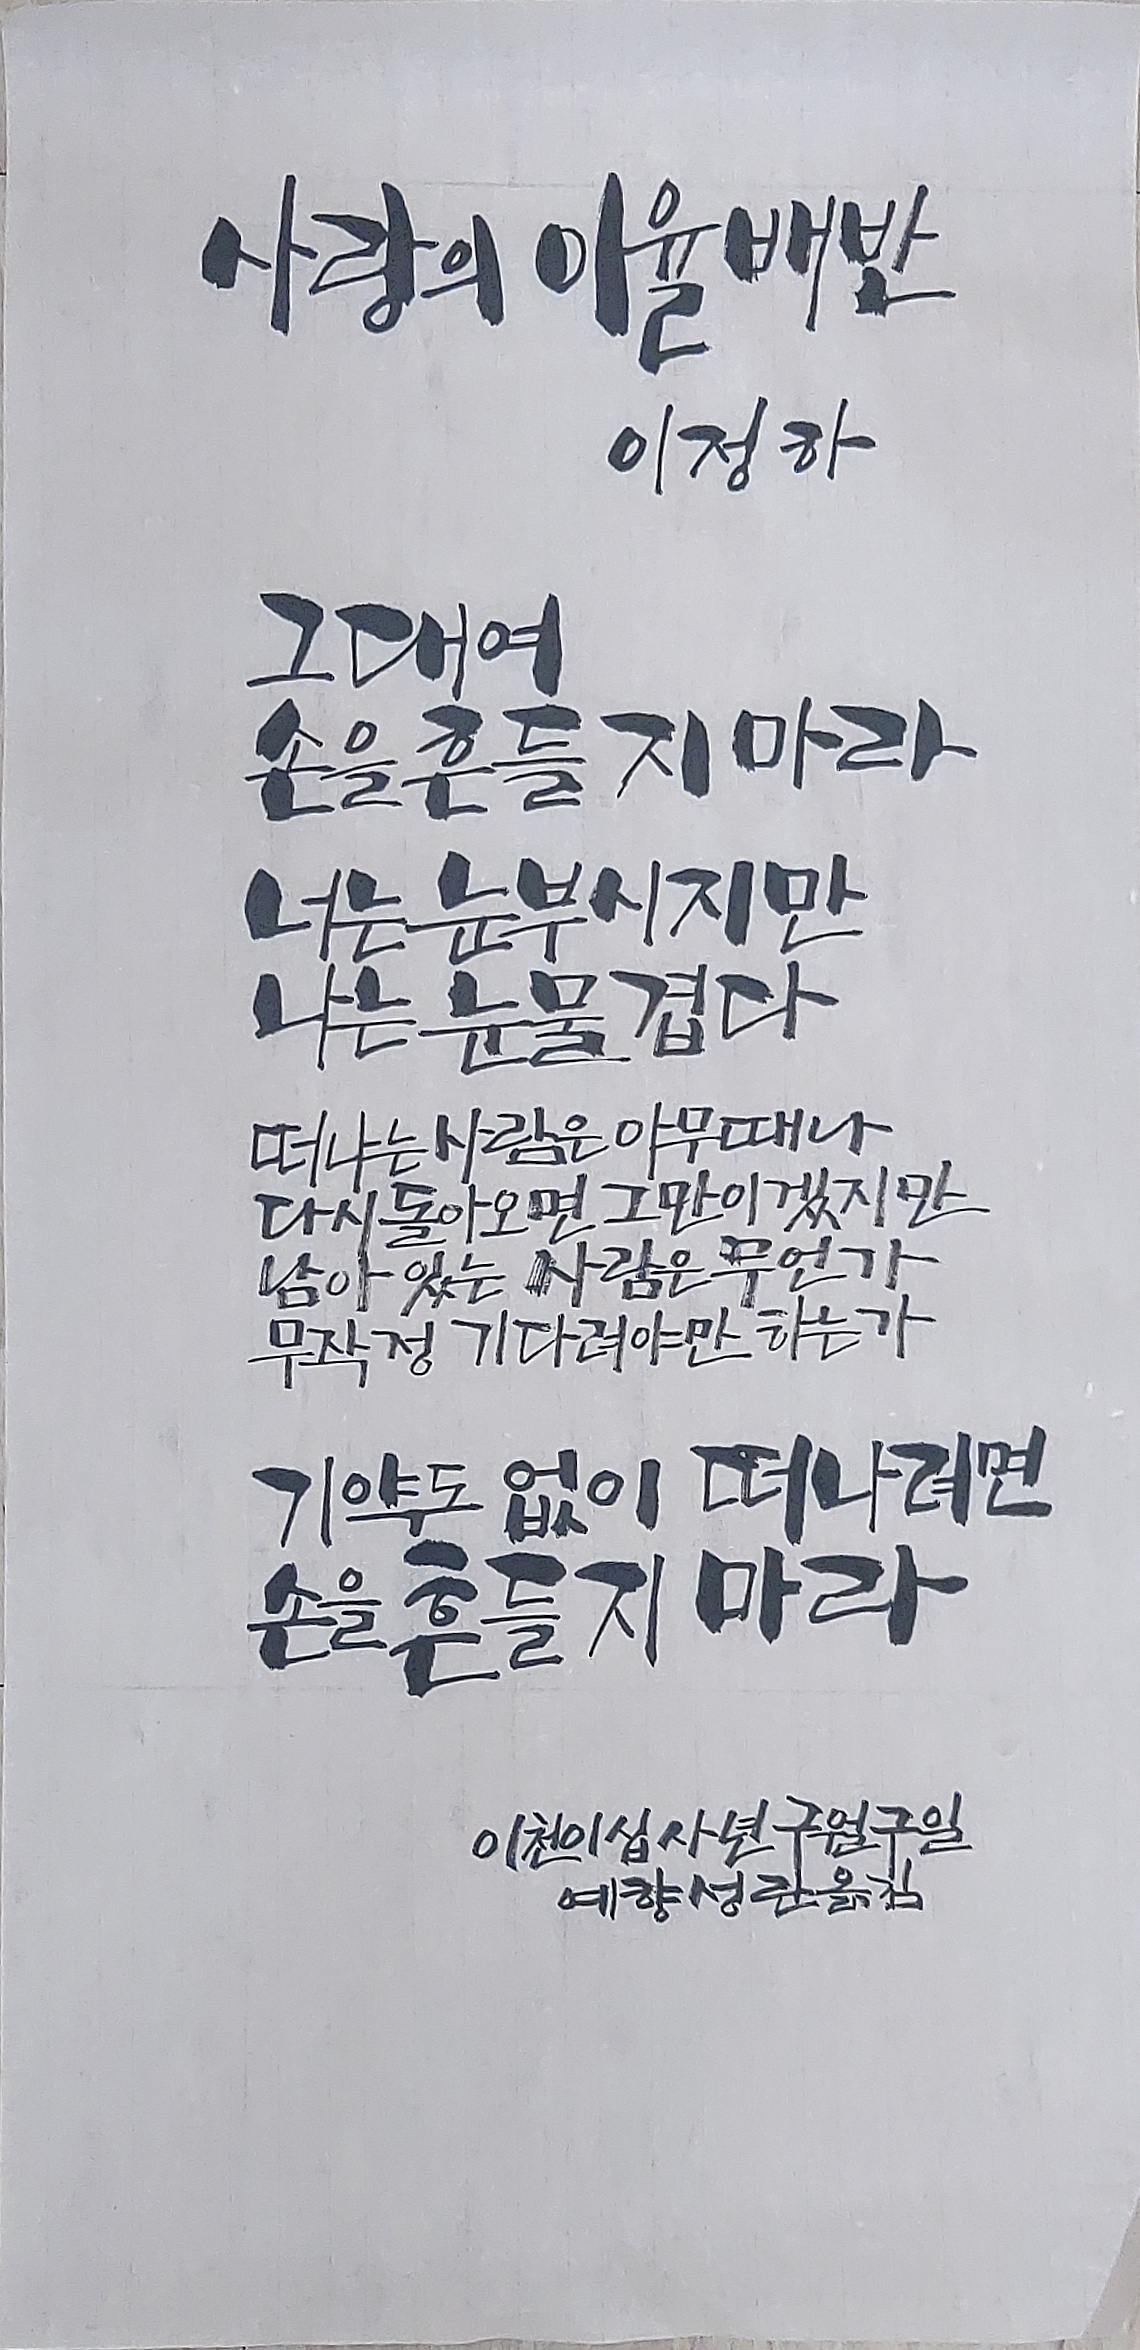 사랑의 이율배반
이정하
그대여
손을 흔들지 마라
너는 눈부시지만
나는 눈물겹다
떠나는 사람은 아무때나
다시 돌아오면 그만이겠지만
남아 있는 사람은 무언가
무작정 기다려야만 하는가
기약도 없이 떠나려면
손을 흔들지 마라
이천이십사년 구월구일
예향 성란 옮김